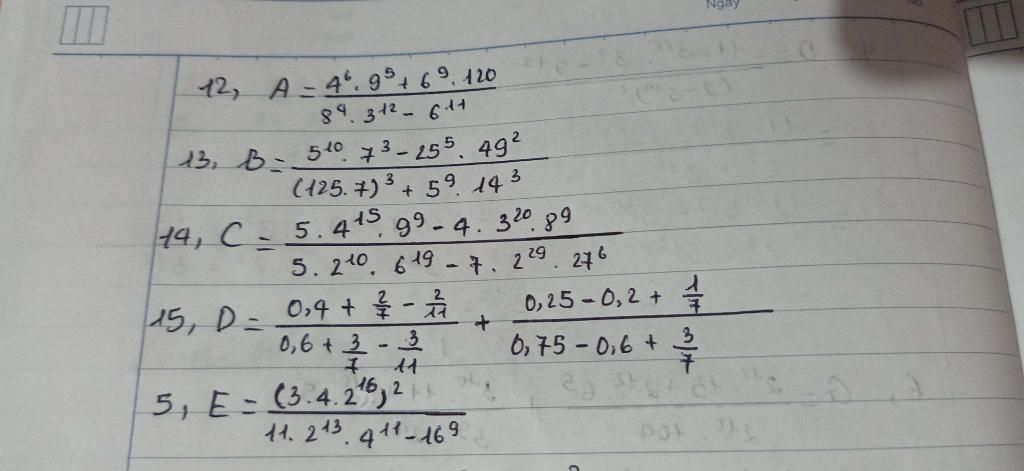 Ngày No.
12, A = (4^6 . 9^5 + 6^9 . 120) / (8^4 . 3^12 - 6^11)
13, B = (5^10 . 7^3 - 25^5 . 49^2) / ((125.7)^3 + 5^9 . 14^3)
14, C = (5 . 4^15 . 9^9 - 4 . 3^20 . 8^9) / (5 . 2^10 . 6^19 - 7 . 2^29 . 27^6)
15, D = (0,4 + 2/7 - 2/11) / (0,6 + 3/7 - 3/11) + (0,25 - 0,2 + 1/7) / (0,75 - 0,6 + 3/7)
5, E = (3.4.2^16)^2 / (11.2^13 . 4^11 - 16^9)